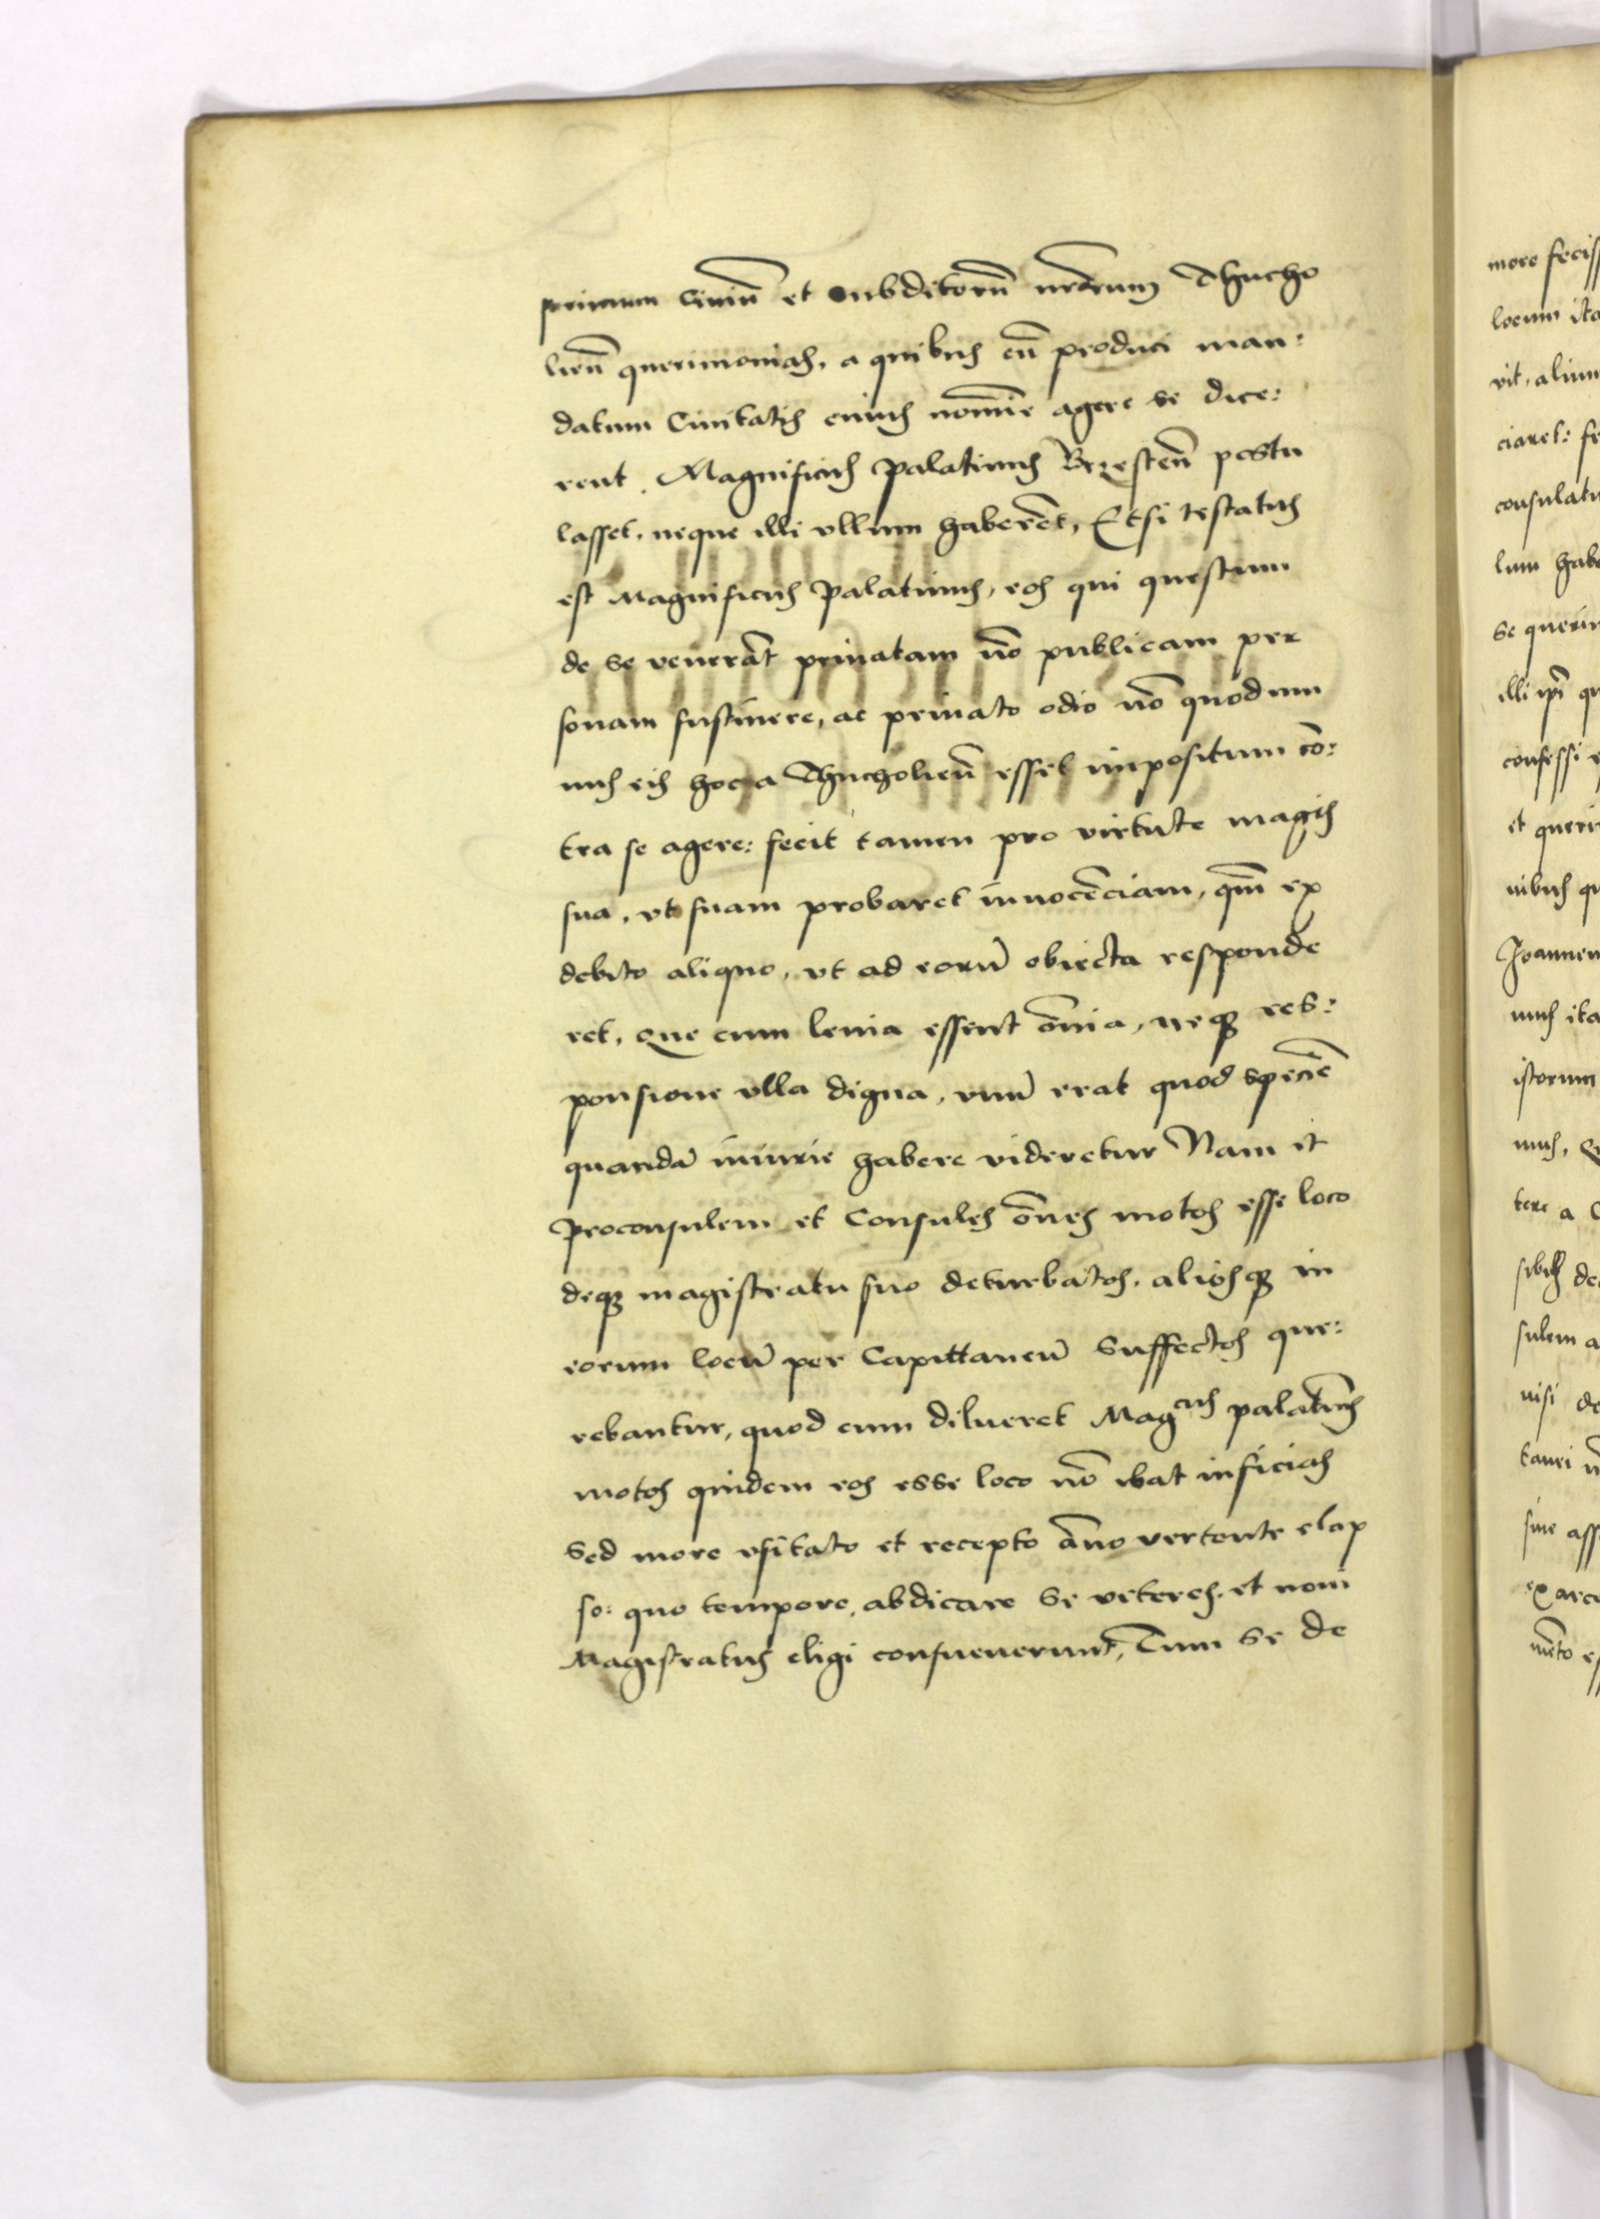 primum Ciuiū et Subditorū nrōrum Thucho
lien̄ querimonias, a quibus cū produci man:
datum Ciuitatis cuius nomīe agere se dice:
rent. Magnificus Palatinus Brzesten̄ postu
lasset, neque illi vllum haberēt, Etsi testatus
est Magnificus Palatinus, eos qui questum
de se venerāt priuatam nō publicam per
sonam sustinere, ac priuato odio nō quod mu
nus eis hoc a Thucholien̄ esset impositum cō:
tra se agere: fecit tamen pro virtute magis
sua, vt suam probaret innocēciam, qm̄ ex
debito aliquo, vt ad eorū obiecta responde
ret, Que cum leuia essent ōmia, neqz res:
ponsione vlla digna, vnū erat quod speciē
quandā iniurie habere videretur Nam et
Proconsulem et Consules ōnes motos esse loco
deqz magistratu suo deturbatos, aliosqz in
eorum locū per Capittaneū Suffectos que:
rebantur, quod cum dilueret Magcus palatinus
motos quidem eos esse loco nō ibat inficias
Sed more vsitato et recepto āno vertente elap
so: quo tempore, abdicare se veteres, et noui
Magistratus eligi consueuerunt, Tum se de
more feciss
locum ita
vit, alium
ciaret: fe
consulatu
lum habe
se querim
illi ipi qu
confessi e
et queri
nibus qu
Joannem
nus ita
istorum
nus, Q
tere a C
sibus de
sulem a
nisi de
tanei n
siue ass
ex arce
mēto es